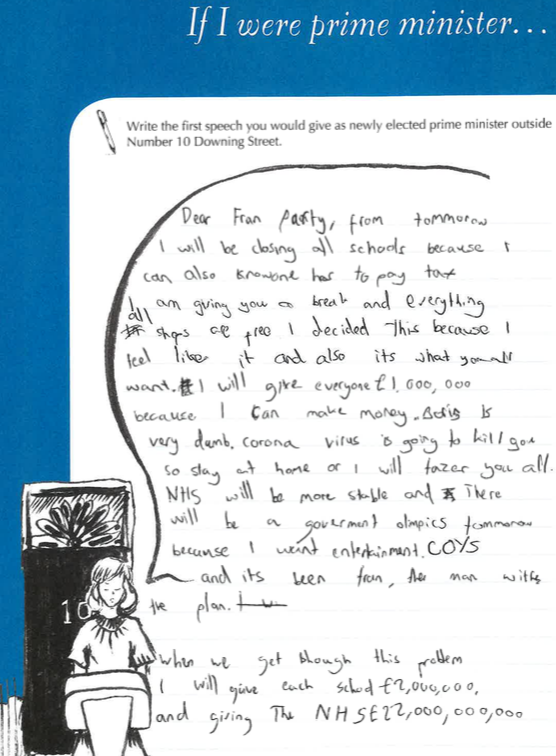 If I were prime minister...
Write the first speech you would give as newly elected prime minister outside
Number 10 Downing Street.
Dear Fran Party, from tommorow
I will be closing all schools because I
can also knowone has to pay tax
I am giving you a break and everything
all shops are free I decided This because I
feel like it and also its what you all
want. I will give everyone £1,000,000
because I can make money. Boris is
very dumb. corona virus is going to kill you
so stay at home or I will tazer you all.
NHS will be more stable and There
will be a goverment olimpics tommorow
because I want entertainment. COYS
and its been fran, the man with
the plan.
10
when we get though this problem
I will give each school £2,000,000,
and giving The NHS £22,000,000,000